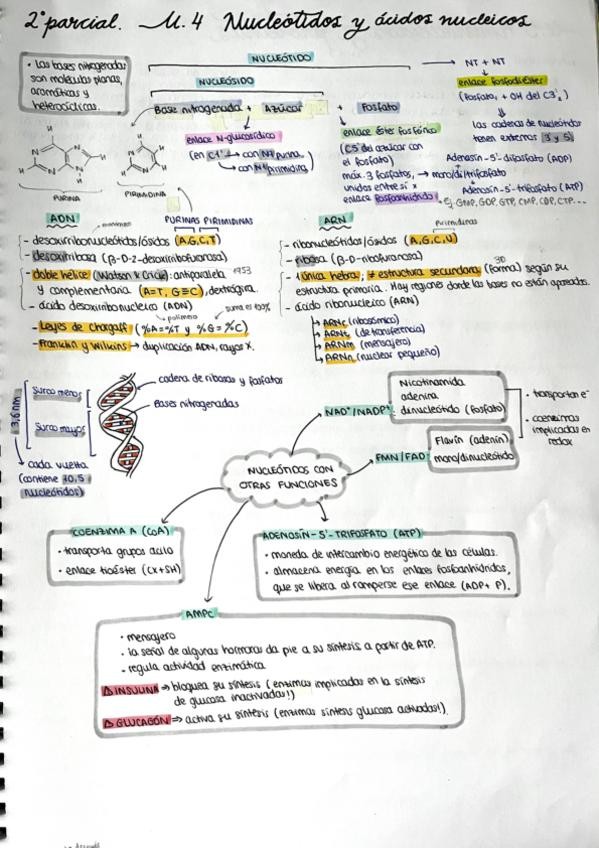 2º parcial. U.4 Nucleótidos y ácidos nucleicos
• Las bases nitrogenadas
son moléculas planas,
aromáticas y
heterocíclicas.
NUCLEÓTIDO
NUCLEÓSIDO
Base nitrogenada + Azúcar + Fosfato
NT + NT
enlace fosfodiéster
(fosfato, + OH del C3'2)
las cadenas de nucleótidos
tienen extremos 3 y 5
enlace N-glucosídico
(en C1' → con N9 purina
→ con N1 pirimidina)
enlace éster fosfórico
(C5' del azúcar con
el fosfato)
máx. 3 fosfatos, → mono/di/trifosfato
unidos entre sí x
enlace fosfoanhídrido
Adenosín-5'-difosfato (ADP)
Adenosín-5'-trifosfato (ATP)
Ej. GMP, GDP, GTP, CMP, CDP, CTP...
PURINA
PIRIMIDINA
ADN
monómero
PURINAS PIRIMIDINAS
- desoxirribonucleótidos/ósidos (A,G,C,T)
- desoxirribosa (β-D-2-desoxiribofuranosa)
- doble hélice (Watson & Crick): antiparalela 1953
y complementaria (A=T, G≡C), dextrógira.
- ácido desoxirribonucleico (ADN)
polímero
suma es 100%
- Leyes de Chargaff (%A=%T y %G=%C)
- Franklin y Wilkins → duplicación ADN, rayos X.
ARN
pirimidinas
- ribonucleótidos/ósidos (A,G,C,U)
- ribosa (β-D-ribofuranosa)
3D
- 1 única hebra; ≠ estructura secundaria (forma) según su
estructura primaria. Hay regiones donde las bases no están apareadas.
- ácido ribonucleico (ARN)
→ ARNr (ribosómico)
→ ARNt (de transferencia)
→ ARNm (mensajero)
→ ARNn (nuclear pequeño)
3,6nm
Surco menor
Surco mayor
cadena de ribosas y fosfatos
Bases nitrogenadas
cada vuelta
(contiene 10,5
nucleótidos)
NUCLEÓTIDOS CON
OTRAS FUNCIONES
NAD+/NADP+:
Nicotinamida
adenina
dinucleótido (fosfato)
FMN/FAD:
Flavín (adenín)
mono/dinucleótido
• transportan e-
• coenzimas
implicadas en
redox
COENZIMA A (CoA)
• transporta grupos acilo
• enlace tioéster (CX+SH)
ADENOSÍN-5'-TRIFOSFATO (ATP)
• moneda de intercambio energético de las células.
• almacena energía en los enlaces fosfoanhídridos,
que se libera al romperse ese enlace (ADP+ P).
AMPc
• mensajero
• la señal de algunas hormonas da pie a su síntesis a partir de ATP.
• regula actividad enzimática
△ INSULINA → bloquea su síntesis (enzimas implicadas en la síntesis
de glucosa inactivadas!)
△ GLUCAGÓN ⇒ activa su síntesis (enzimas síntesis glucosa activadas!).